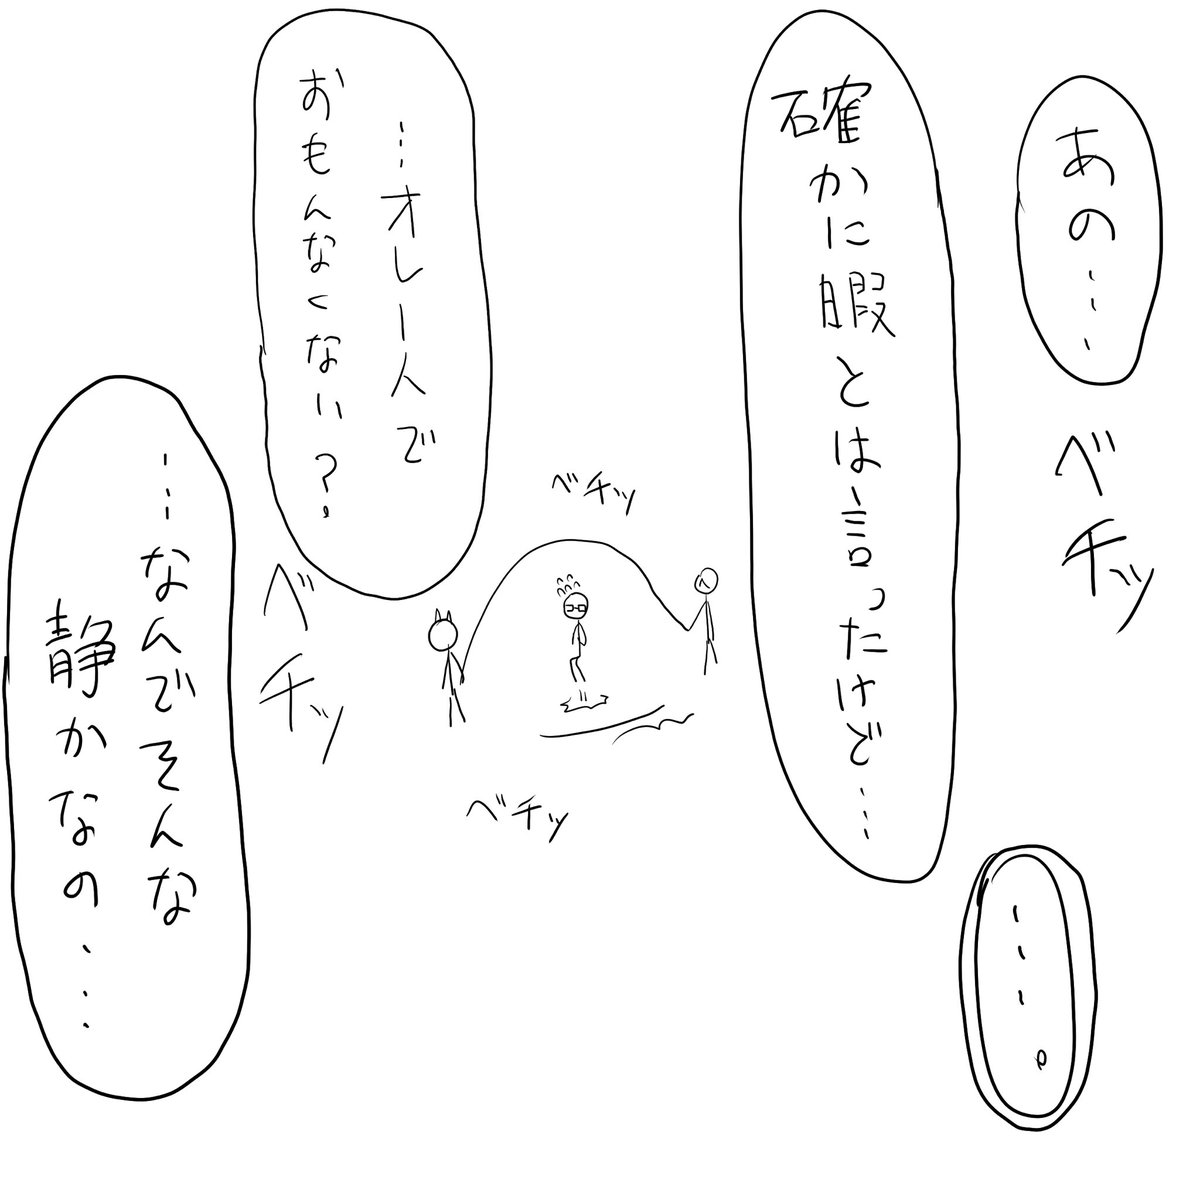 あの…
ベチッ
確かに暇とは言ったけど…
…。
ベチッ
…オレ一人で
おもんなくない?
ベチッ
ベチッ
…なんでそんな
静かなの…